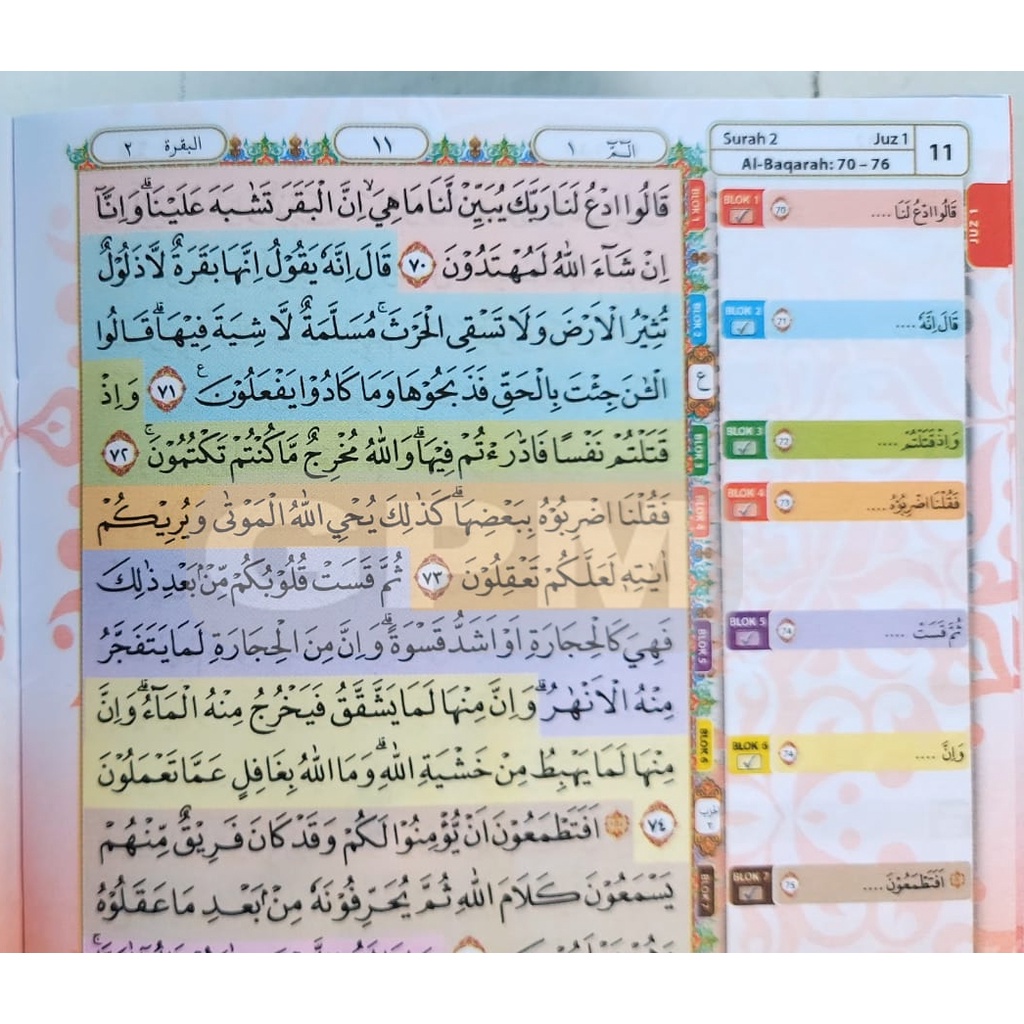 البقرة ٢
١١
الٓمّٓ ١
Surah 2 Juz 1
Al-Baqarah: 70 – 76
11
قَالُوا ادْعُ لَنَا رَبَّكَ يُبَيِّنْ لَّنَا مَا هِيَۙ اِنَّ الْبَقَرَ تَشٰبَهَ عَلَيْنَاۗ وَاِنَّآ
اِنْ شَاۤءَ اللّٰهُ لَمُهْتَدُوْنَ ٧٠ قَالَ اِنَّهٗ يَقُوْلُ اِنَّهَا بَقَرَةٌ لَّا ذَلُوْلٌ
تُثِيْرُ الْاَرْضَ وَلَا تَسْقِى الْحَرْثَۚ مُسَلَّمَةٌ لَّا شِيَةَ فِيْهَاۗ قَالُوا
الْـٰٔنَ جِئْتَ بِالْحَقِّ فَذَبَحُوْهَا وَمَا كَادُوْا يَفْعَلُوْنَ ࣖ ٧١ وَاِذْ
قَتَلْتُمْ نَفْسًا فَادّٰرَءْتُمْ فِيْهَاۗ وَاللّٰهُ مُخْرِجٌ مَّا كُنْتُمْ تَكْتُمُوْنَۚ ٧٢
فَقُلْنَا اضْرِبُوْهُ بِبَعْضِهَاۗ كَذٰلِكَ يُحْيِ اللّٰهُ الْمَوْتٰى وَيُرِيْكُمْ
اٰيٰتِهٖ لَعَلَّكُمْ تَعْقِلُوْنَ ٧٣ ثُمَّ قَسَتْ قُلُوْبُكُمْ مِّنْۢ بَعْدِ ذٰلِكَ
فَهِيَ كَالْحِجَارَةِ اَوْ اَشَدُّ قَسْوَةًۗ وَاِنَّ مِنَ الْحِجَارَةِ لَمَا يَتَفَجَّرُ
مِنْهُ الْاَنْهٰرُۗ وَاِنَّ مِنْهَا لَمَا يَشَّقَّقُ فَيَخْرُجُ مِنْهُ الْمَاۤءُۗ وَاِنَّ
مِنْهَا لَمَا يَهْبِطُ مِنْ خَشْيَةِ اللّٰهِۗ وَمَا اللّٰهُ بِغَافِلٍ عَمَّا تَعْمَلُوْنَ
٧٤ ۞ اَفَتَطْمَعُوْنَ اَنْ يُّؤْمِنُوْا لَكُمْ وَقَدْ كَانَ فَرِيْقٌ مِّنْهُمْ
يَسْمَعُوْنَ كَلَامَ اللّٰهِ ثُمَّ يُحَرِّفُوْنَهٗ مِنْۢ بَعْدِ مَا عَقَلُوْهُ
BLOK 1
BLOK 2
ع
BLOK 3
BLOK 4
BLOK 5
BLOK 6
حزب ٢
BLOK 7
BLOK 1 70 قَالُوا ادْعُ لَنَا ....
BLOK 2 71 قَالَ اِنَّهٗ ....
BLOK 3 72 وَاِذْ قَتَلْتُمْ ....
BLOK 4 73 فَقُلْنَا اضْرِبُوْهُ ....
BLOK 5 74 ثُمَّ قَسَتْ ....
BLOK 6 74 وَاِنَّ ....
BLOK 7 75 ۞ اَفَتَطْمَعُوْنَ ....
JUZ 1
GPM